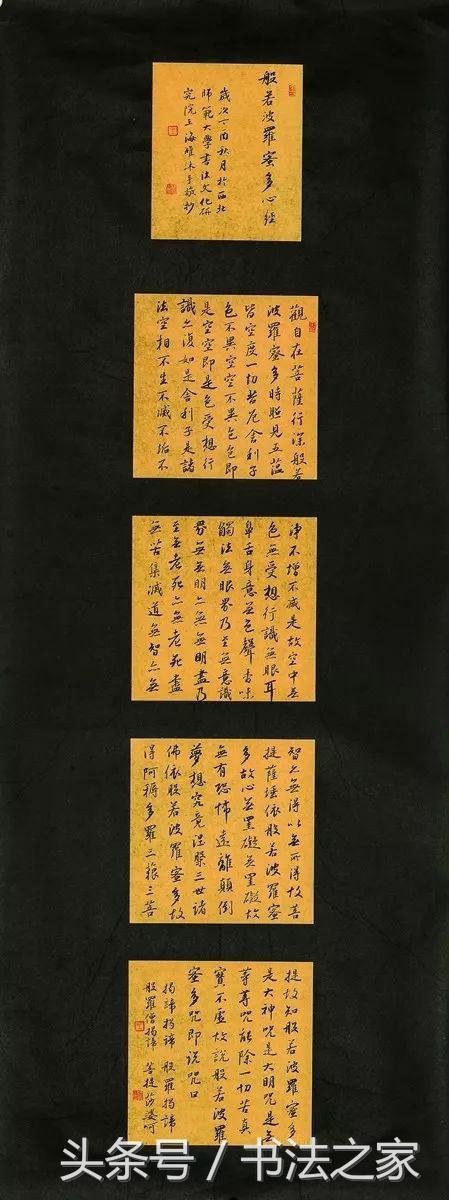 般若波羅蜜多心經
歲次丁酉秋月於西北
師範大學書法文化研
究院王海沐手敬抄
觀自在菩薩行深般若
波羅蜜多時照見五蕴
皆空度一切苦厄舍利子
色不異空空不異色色即
是空空即是色受想行
識亦復如是舍利子是諸
法空相不生不滅不垢不
净不增不减是故空中無
色無受想行識無眼耳
鼻舌身意無色聲香味
觸法無眼界乃至無意識
界無無明亦無無明盡乃
至無老死亦無老死盡
無苦集滅道無智亦無
智亦無得以無所得故菩
提薩埵依般若波羅蜜
多故心無罣礙無罣礙故
無有恐怖遠離顛倒
夢想究竟涅槃三世諸
佛依般若波羅蜜多故
得阿耨多羅三藐三菩
提故知般若波羅蜜多
是大神咒是大明咒是無
等等咒能除一切苦真
實不虚故説般若波羅
蜜多咒即説咒曰
揭諦揭諦 般羅揭諦
般羅僧揭諦 菩提莎婆呵
头条号／书法之家